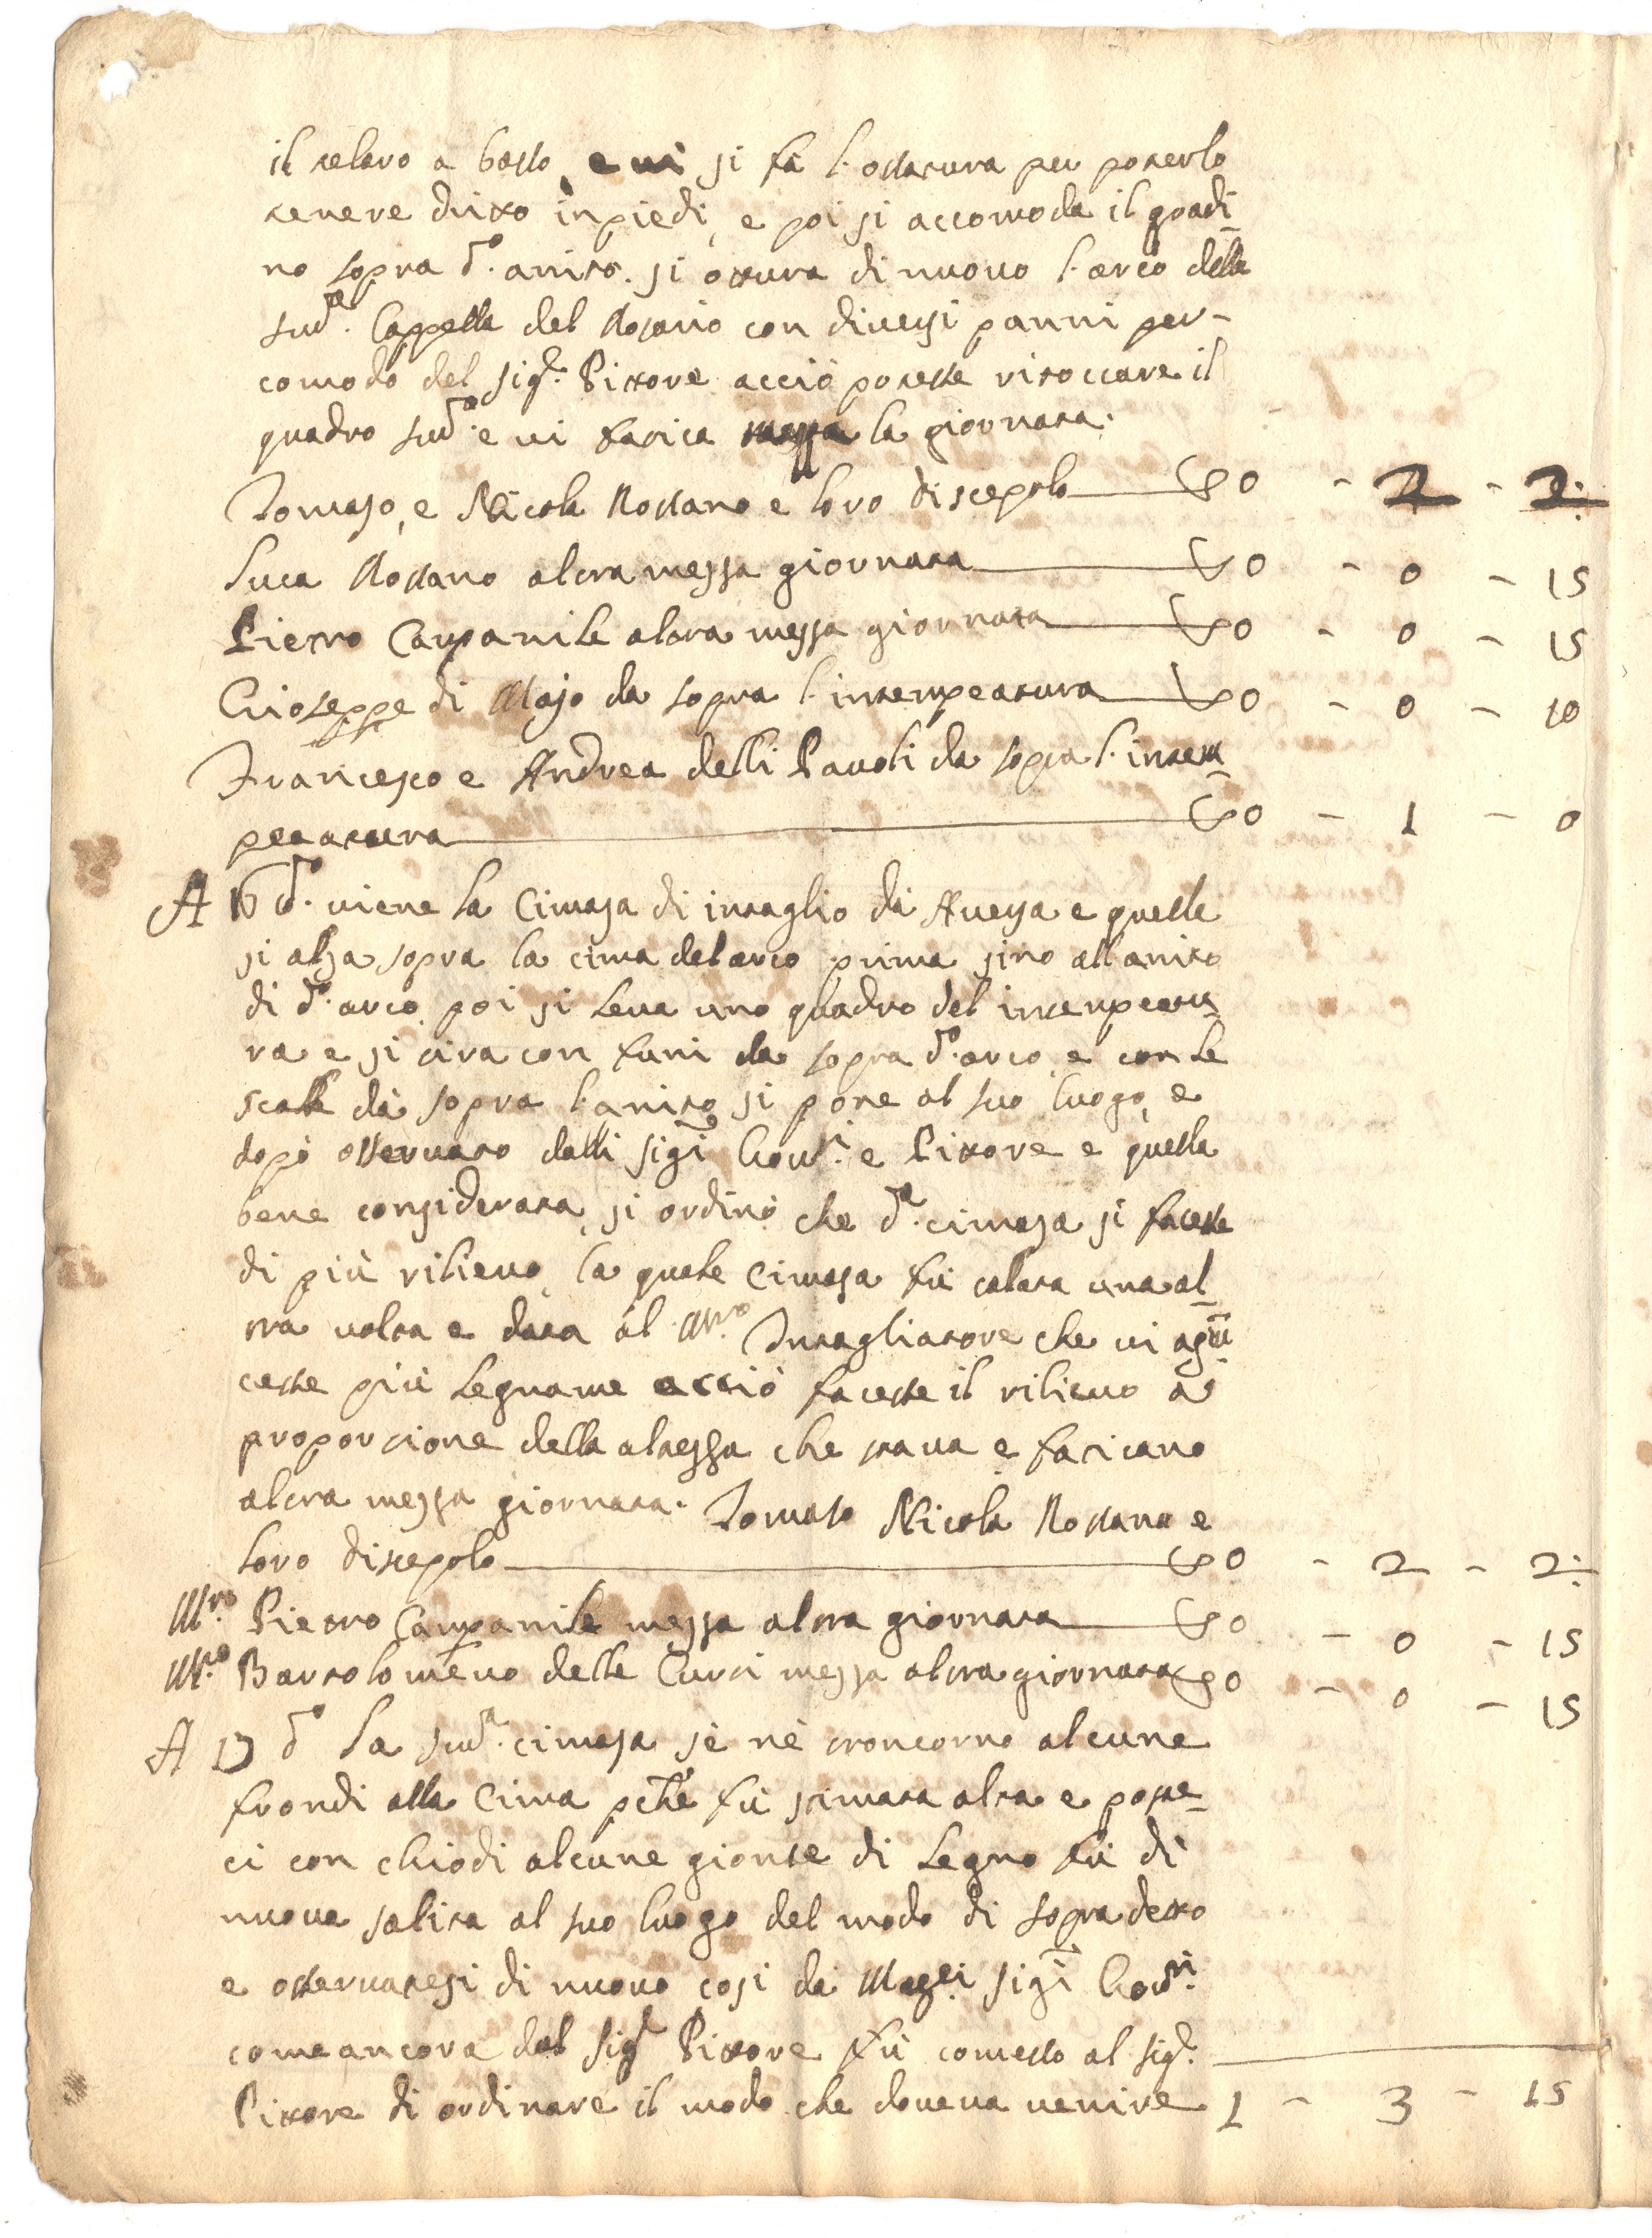 il telaro a basso, e vi si fà l'ossatura per poterlo
tenere dritto inpiedi, e poi si accomoda il gradi_
no sopra d.o anito. si ottura di nuovo l'arco della
sud.a Cappella del Rosario con diversi panni per-
comodo del sig.r Pittore acciò potesse ritoccare il
quadro sud.o e vi fatica mezza la giornata.
Tomaso, e Nicola Rossano e loro discepolo — D 0 - 2 - 2:
Luca Rossano altra mezza giornata — D 0 - 0 - 15
Pietro Campanile altra mezza giornata — D 0 - 0 - 15
Gioseppe di Majo da sopra l'intempeatura — D 0 - 0 - 10
Francesco e Andrea delli Pavoli da sopra l'intem_
peeatura — D 0 - 1 - 0
A 16 d.o viene la Cimasa di intaglio da Aversa e quella
si alza sopra la cima del arco prima sino all anito
di d.o arco, poi si leva uno quadro del intempeatu_
ra e si tira con funi da sopra d.o arco, e con le
scale dà sopra l'anito si pone al suo luogo, e
dopò osservato dalli sig.i Gov.ri e Pittore e quella
bene considerata, si ordinò che d.a cimasa si facesse
di più rilievo, la quale Cimasa fù calata una al_
tra volta e data al M.ro Intagliatore che vi agiu_
cesse più legname acciò facesse il rilievo a
proporzione della altezza che stava e faticano
altra mezza giornata. Tomaso Nicola Rossano e
loro discepolo — D 0 - 2 - 2:
M.ro Pietro Campanile mezza altra giornata — D 0 - 0 - 15
M.ro Bartolomeuo delle Curti mezza altra giornata D 0 - 0 - 15
A 17 d.o La sud.a cimasa sè nè troncorno alcune
frondi alla Cima p̃che fù stimata alta e poste_
ci con chiodi alcune gionte di legno fù di
nuova salita al suo luogo del modo di sopra detto
e osservatesi di nuovo così da Mag.ci sig.i Gov.ri
come ancora dal sig.r Pittore fù comesso al sig.r
Pittore di ordinare il modo che doveva venire 1 - 3 - 15